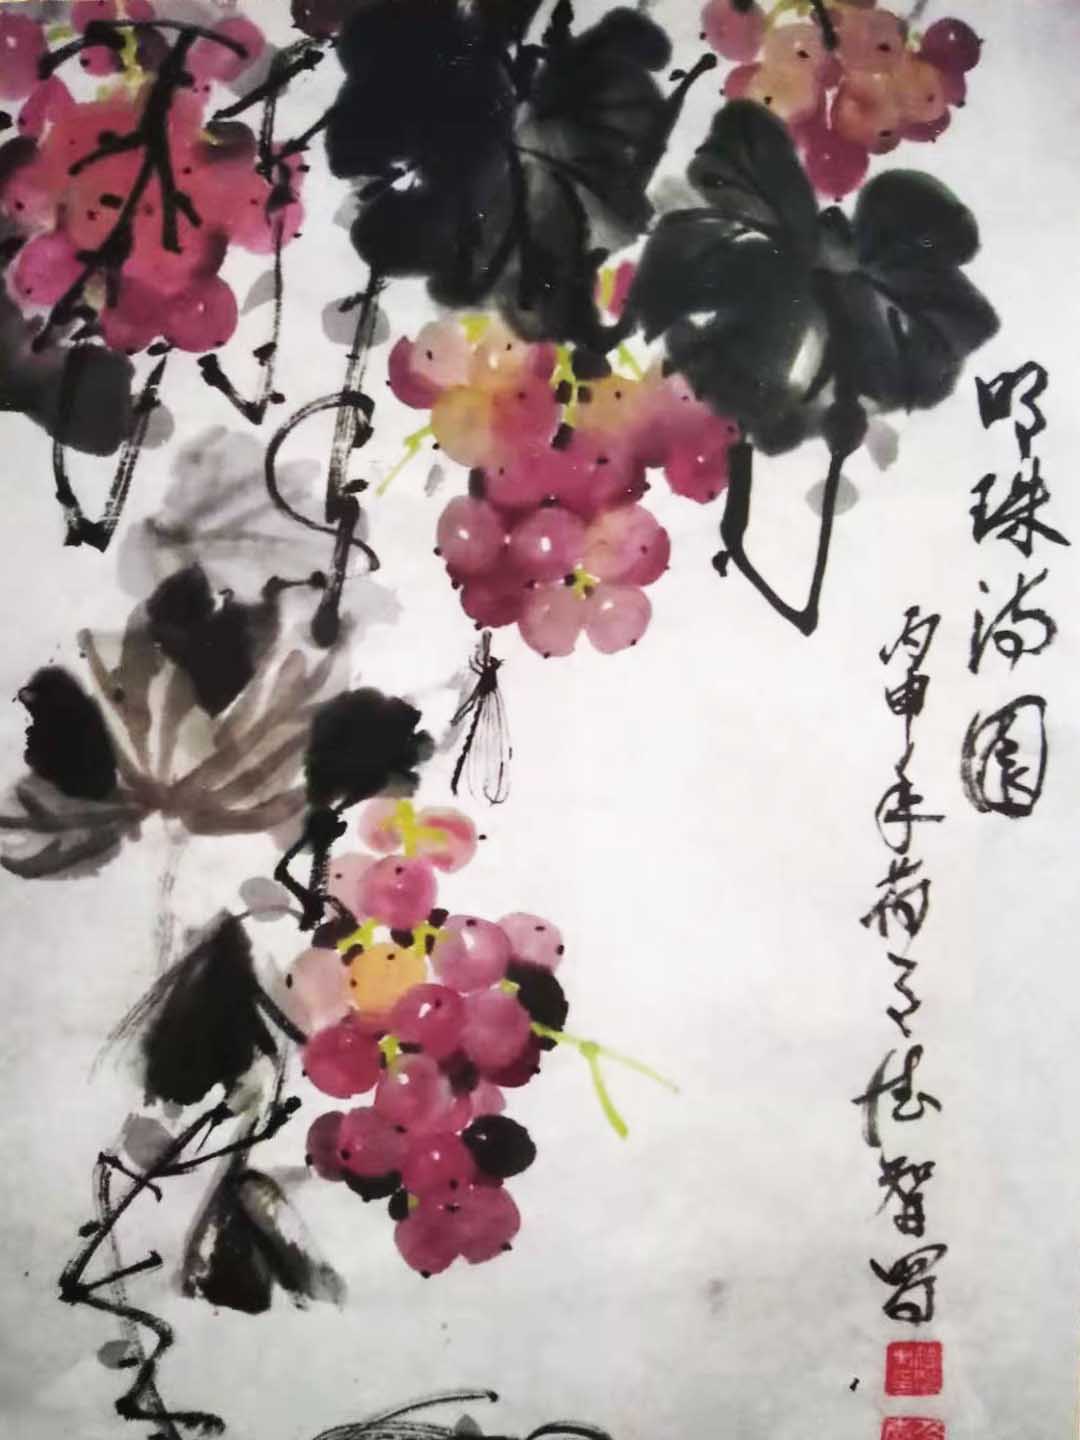 明珠满园
丙申年荷月德智写